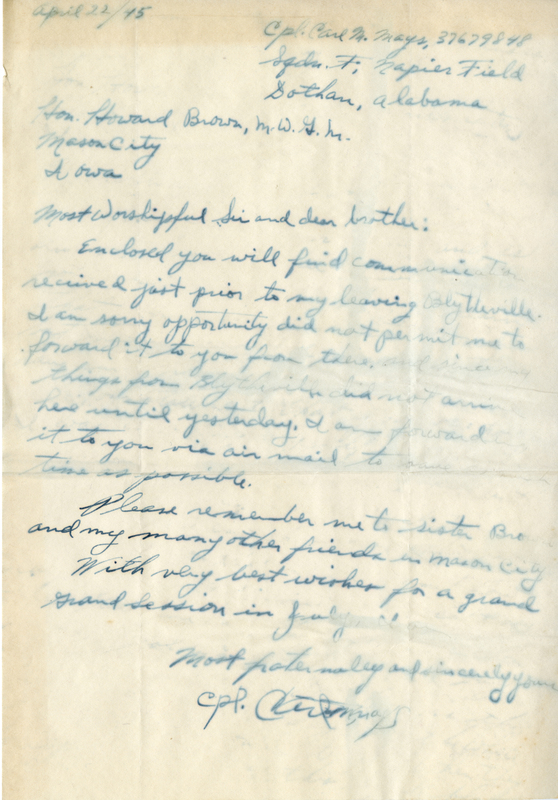 April 22/45
Cpl. Carl M. Mays, 37679848
Sqdn. F, Napier Field
Dothan, Alabama
Hon. Howard Brown, M.W.G.M.
Mason City
Iowa
Most Worshipful Sir and dear brother:
Enclosed you will find communication
received just prior to my leaving Blytheville.
I am sorry opportunity did not permit me to
forward it to you from there, and since my
things from Blytheville did not arrive
here until yesterday. I am forward
it to you via air mail to
time as possible.
Please remember me to sister Bro
and my many other friends in Mason City
With very best wishes for a grand
Grand Session in July
Most fraternaley and sincerely yours
Cpl. Carl M. Mays